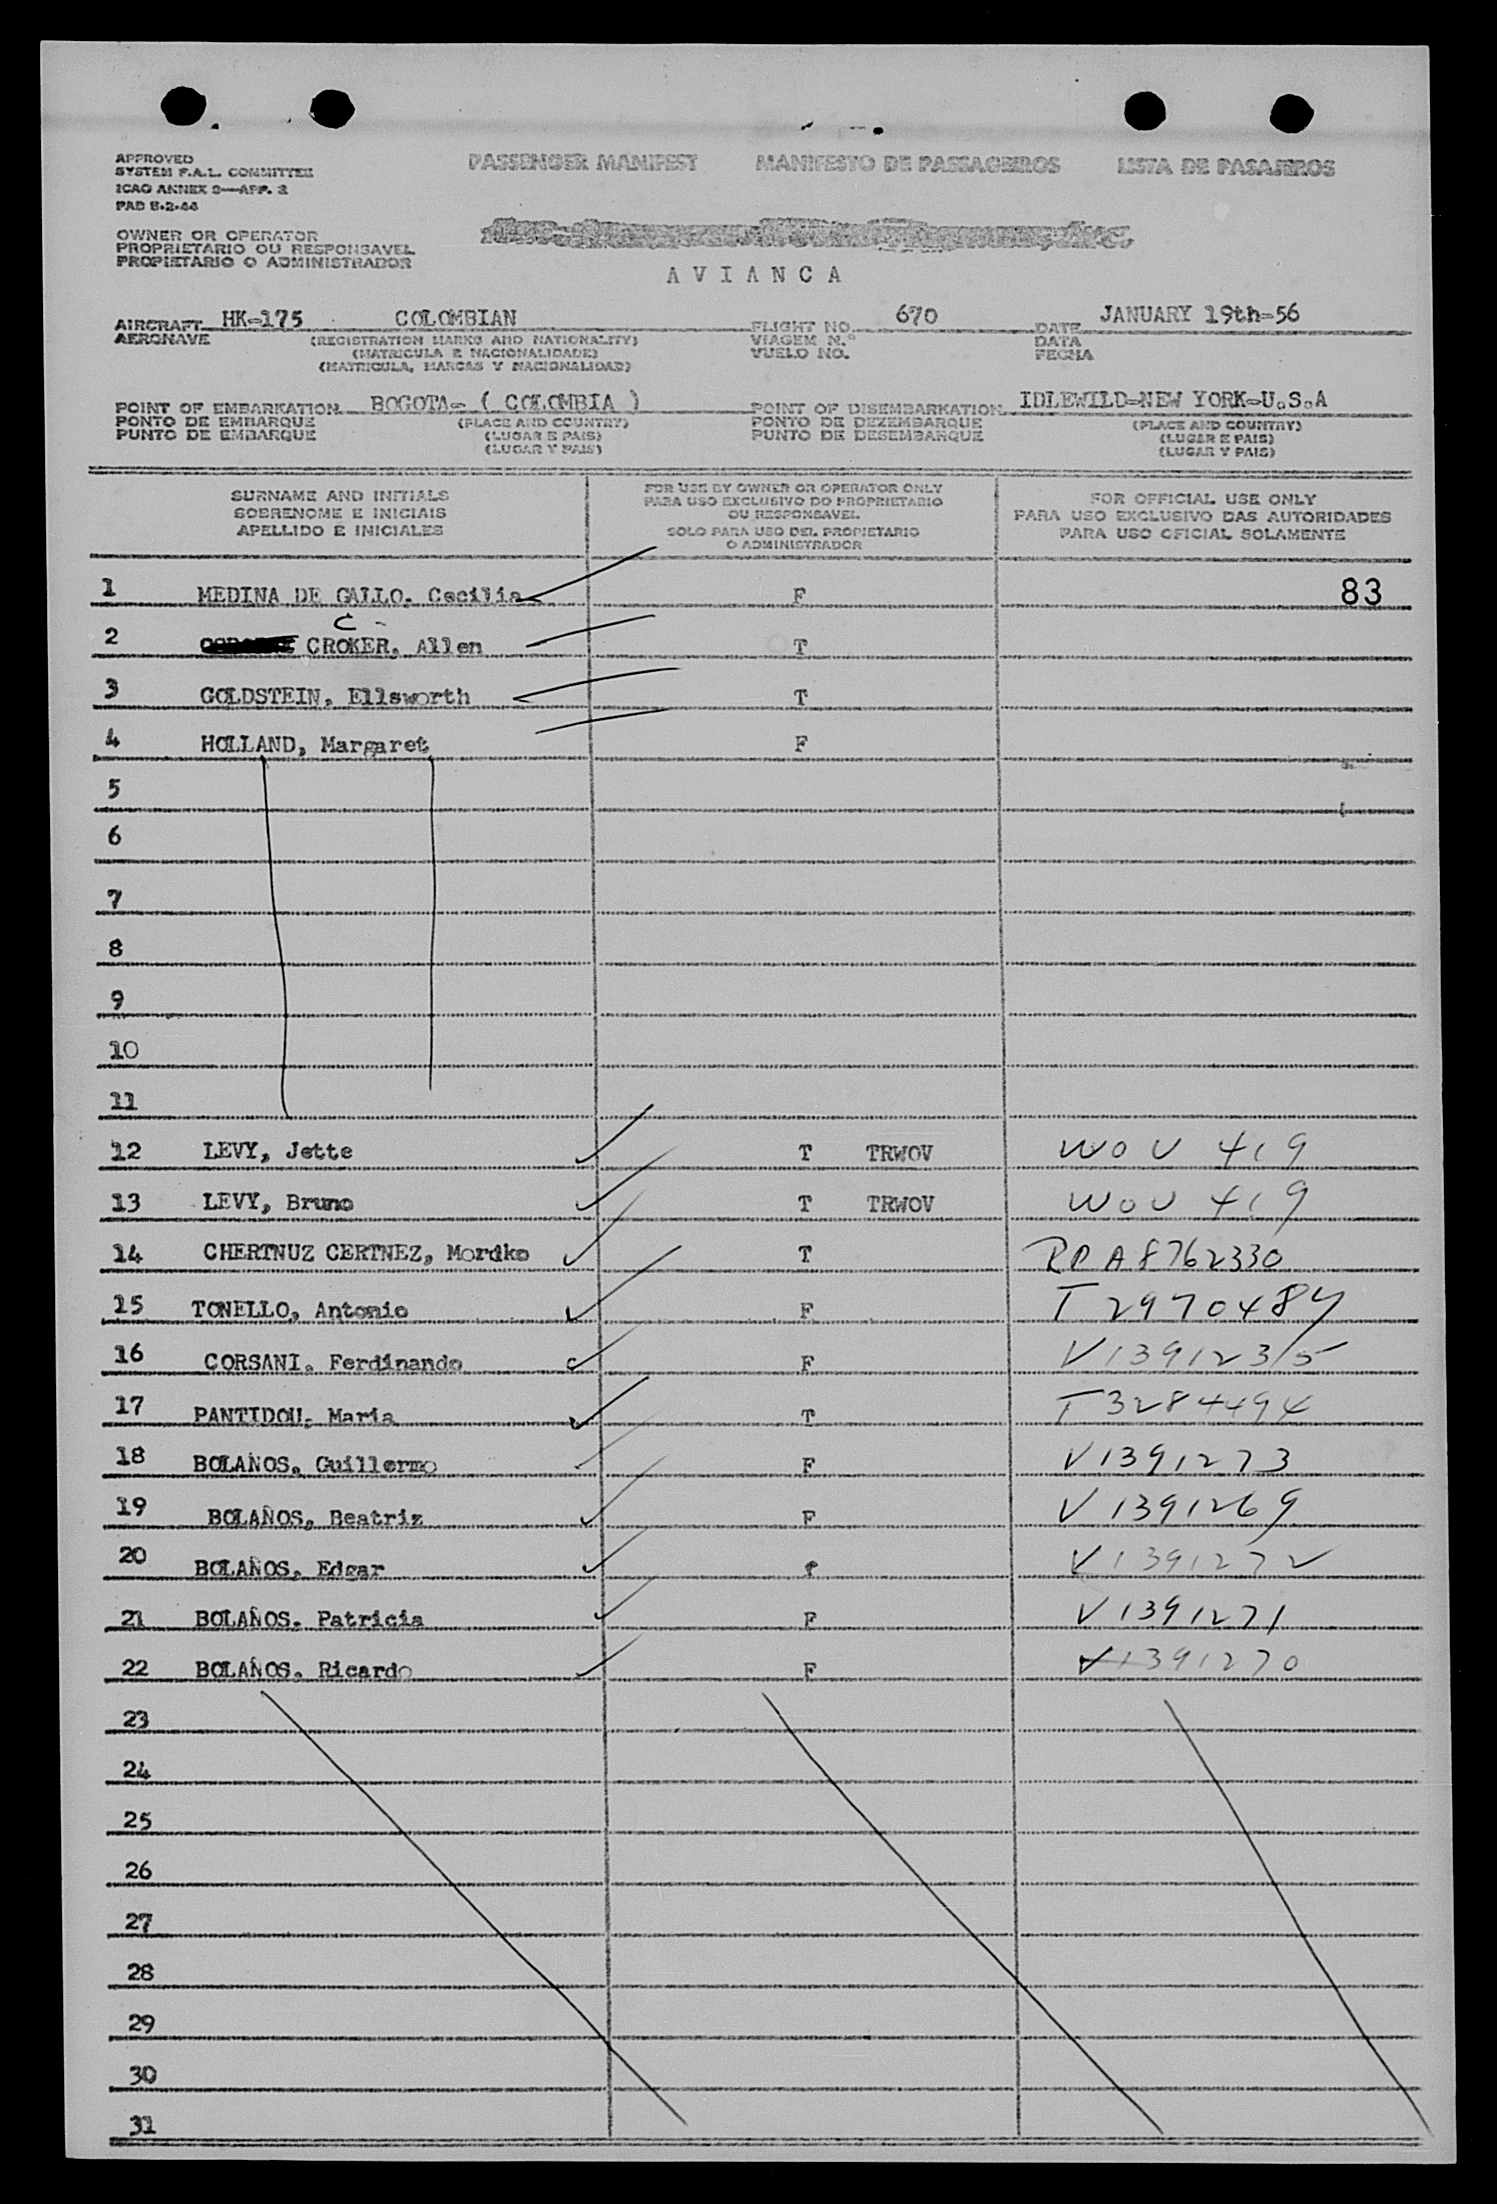 PASSENGER MANIFEST MANIFESTO DE PASSAGEIROS LISTA DE PASAJEROS
APPROVED
SYSTEM F.A.L. COMMITTEE
ICAO ANNEX 9—APP. 3
OWNER OR OPERATOR
PROPRIETARIO OU RESPONSAVEL
PROPIETARIO O ADMINISTRADOR
AVIANCA
AIRCRAFT HK-175 COLOMBIAN FLIGHT NO. 670 DATE JANUARY 19th-56
AERONAVE (REGISTRATION MARKS AND NATIONALITY) VIAGEM N.º DATA
(MATRICULA E NACIONALIDADE) VUELO NO. FECHA
(MATRICULA, MARCAS Y NACIONALIDAD)
POINT OF EMBARKATION BOGOTA- ( COLOMBIA ) POINT OF DISEMBARKATION IDLEWILD-NEW YORK-U.S.A
PONTO DE EMBARQUE (PLACE AND COUNTRY) PONTO DE DEZEMBARQUE (PLACE AND COUNTRY)
PUNTO DE EMBARQUE (LUGAR E PAIS) PUNTO DE DESEMBARQUE (LUGAR E PAIS)
(LUGAR Y PAIS) (LUGAR Y PAIS)
SURNAME AND INITIALS
SOBRENOME E INICIAIS
APELLIDO E INICIALES
FOR USE BY OWNER OR OPERATOR ONLY
PARA USO EXCLUSIVO DO PROPRIETARIO
OU RESPONSAVEL
SOLO PARA USO DEL PROPIETARIO
O ADMINISTRADOR
FOR OFFICIAL USE ONLY
PARA USO EXCLUSIVO DAS AUTORIDADES
PARA USO OFICIAL SOLAMENTE
1 MEDINA DE GALLO. Cecilia F 83
C -
2 CROKER, Allen T
3 GOLDSTEIN, Ellsworth T
4 HOLLAND, Margaret F
5
6
7
8
9
10
11
12 LEVY, Jette T TRWOV WOV 419
13 LEVY, Bruno T TRWOV WOV 419
14 CHERTNUZ CERTNEZ, Mordko T RP A8762330
15 TONELLO, Antonio F T 2970484
16 CORSANI, Ferdinando F V1391235
17 PANTIDOU, Maria T T3284494
18 BOLAÑOS, Guillermo F V1391273
19 BOLAÑOS, Beatriz F V1391269
20 BOLAÑOS, Edgar V1391272
21 BOLAÑOS. Patricia F V1391271
22 BOLAÑOS. Ricardo F V1391270
23
24
25
26
27
28
29
30
31